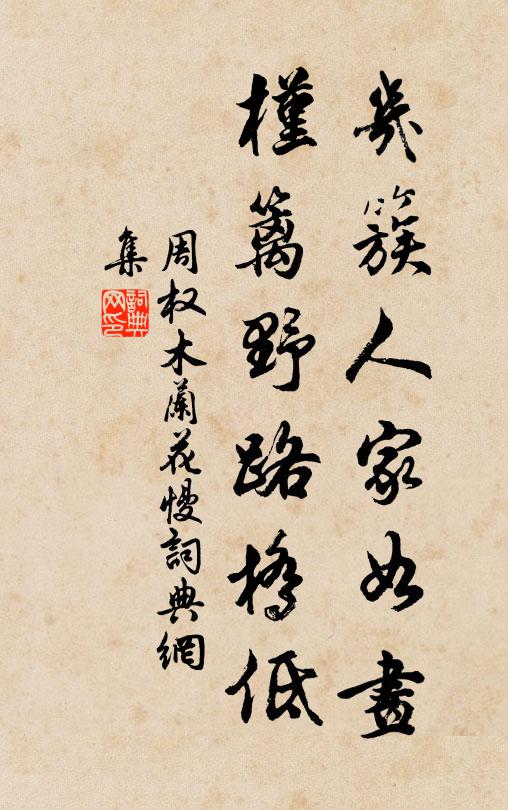 幾簇人家如畫
槿籬野路橋低
周权木蘭花慢詞典網
集
詞典网印